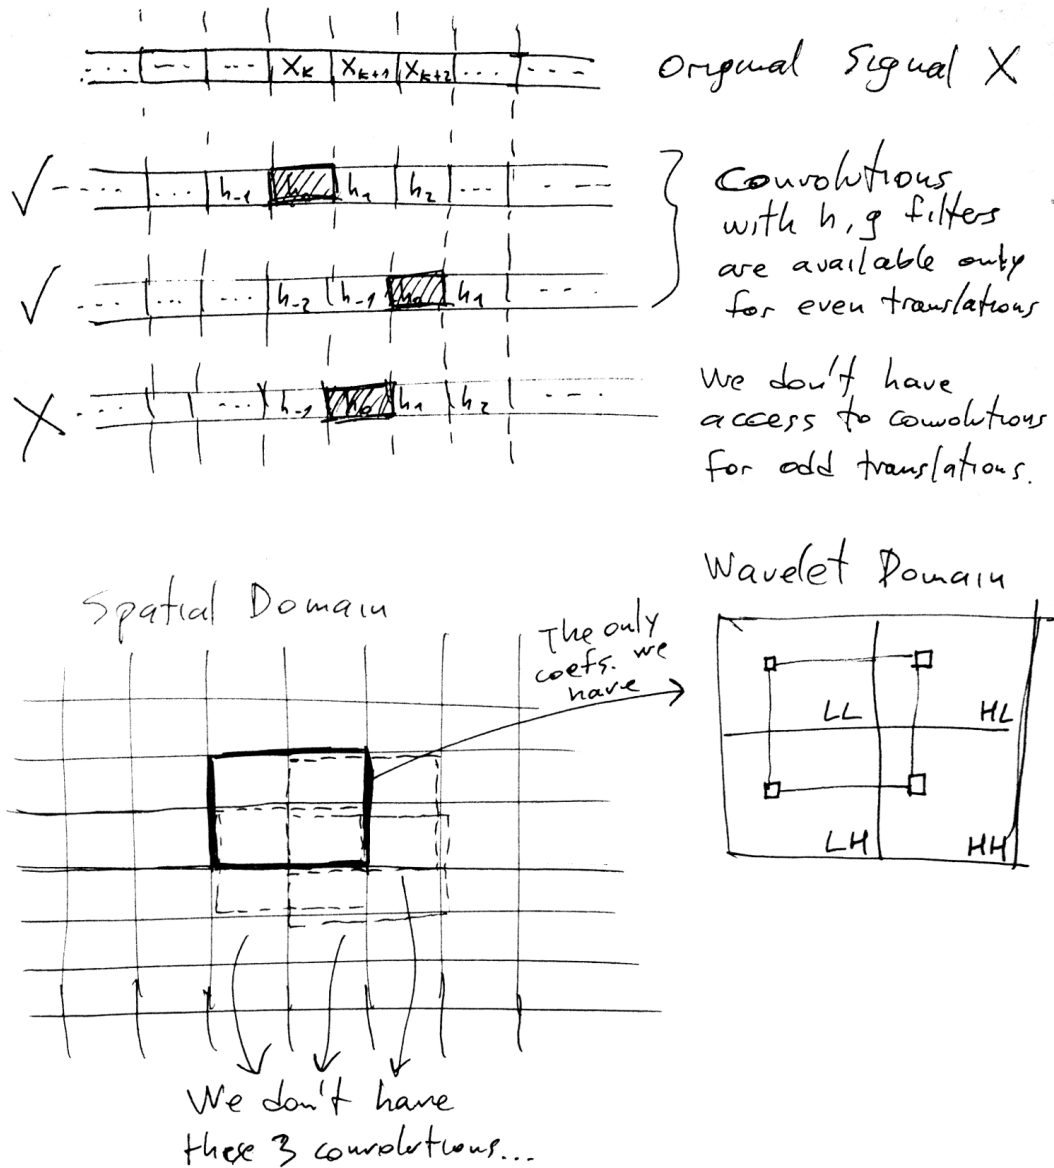 ... --- ... X_k X_{k+1} X_{k+2} ... ---
Original Signal X
✓ --... ... h_{-1} h_0 h_1 h_2 ... ---
✓ ... ... --- h_{-2} h_{-1} h_0 h_1 ---
X ... ... h_{-1} h_0 h_1 h_2 ---
Convolutions
with h, g filters
are available only
for even translations
We don't have
access to convolutions
for odd translations.
Spatial Domain
The only
coefs. we
have
Wavelet Domain
LL HL
LH HH
We don't have
these 3 convolutions...